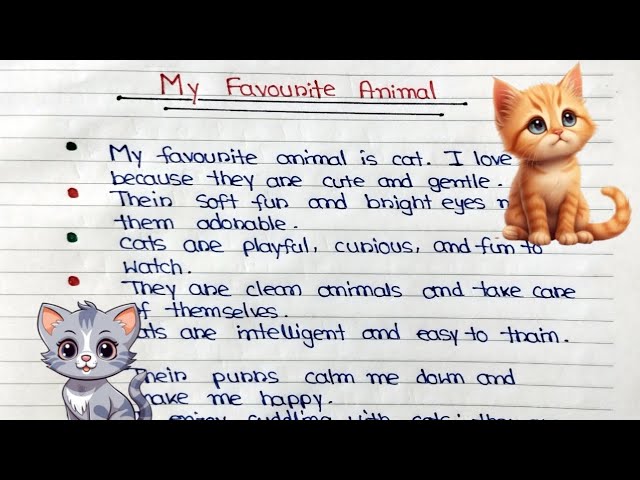 My Favourite Animal
My favourite animal is cat. I love
because they are cute and gentle.
Their soft fur and bright eyes
them adorable.
Cats are playful, curious, and fun to
watch.
They are clean animals and take care
of themselves.
Cats are intelligent and easy to train.
Their purrs calm me down and
make me happy.
enjoy cuddling with cats